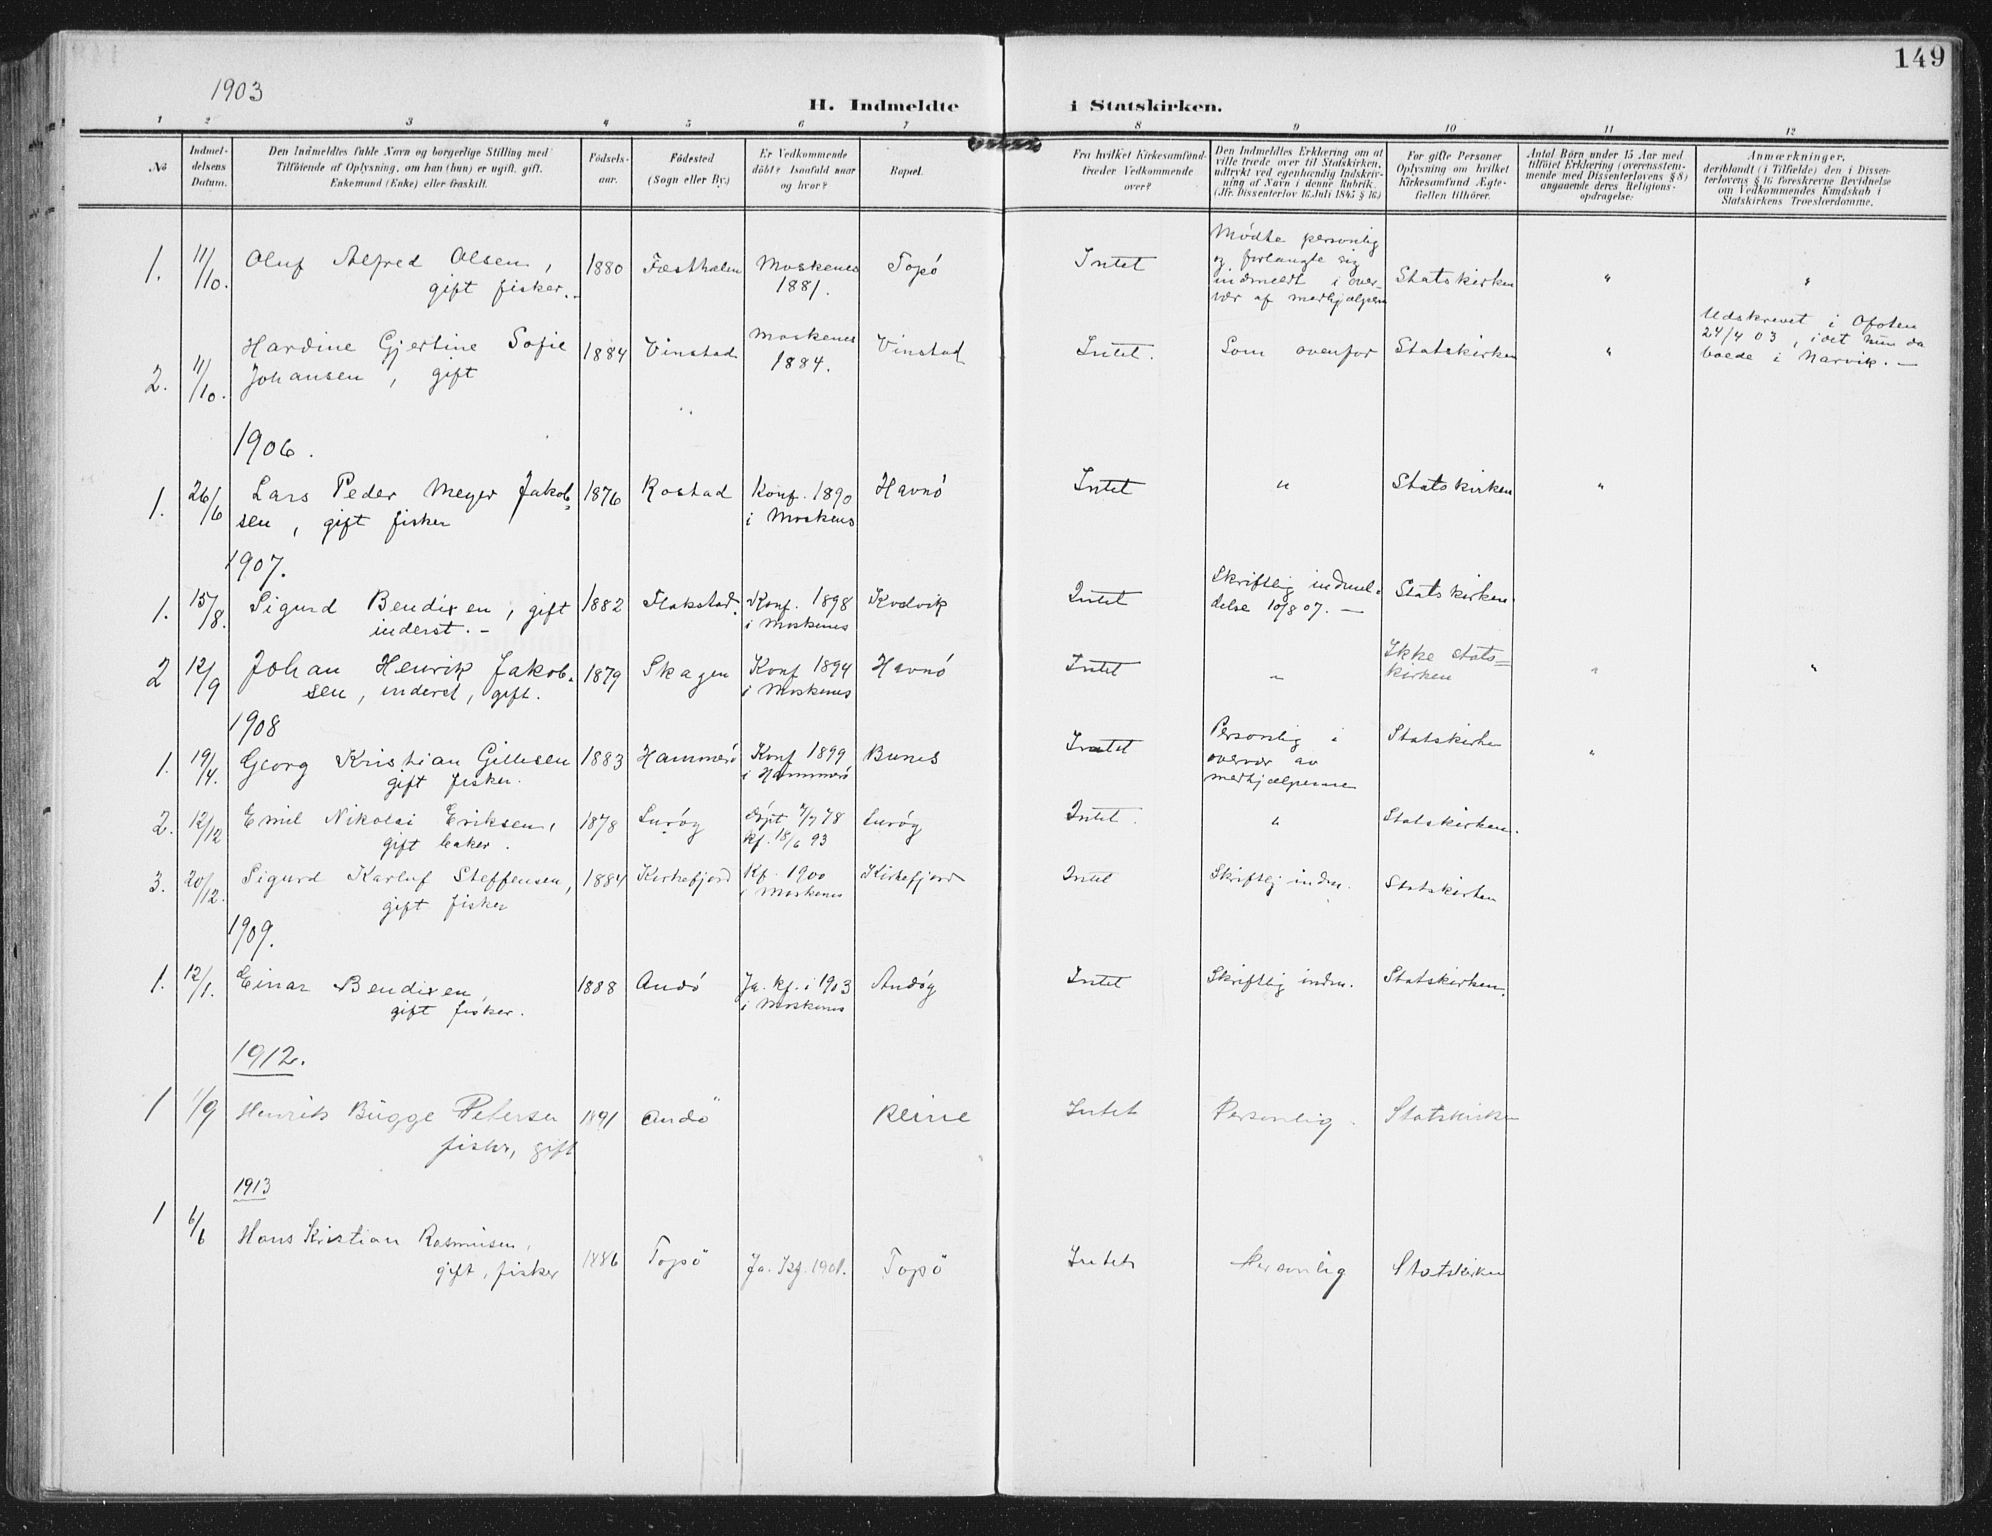 149
1903
H. Indmeldte i Statskirken.
1 2 3 4 5 6 7 8 9 10 11 12
No
Indmel-
delsens
Datum.
Den Indmeldtes fulde Navn og borgerlige Stilling med
Tilföiende af Oplysning, om han (hun) er ugift, gift,
Enkemand (Enke) eller fraskilt.
Födsels-
aar.
Födested
(Sogn eller By.)
Er Vedkommende
döbt? Isaafald naar
og hvor?
Bopæl.
Fra hvilket Kirkesamfund
træder Vedkommende
over?
Den Indmeldtes Erklæring om at
ville træde over til Statskirken,
udtrykt ved egenhændig Indskriv-
ning af Navn i denne Rubrik.
(Jfr. Dissenterlov 16 Juli 1845 § 16.)
For gifte Personer
Oplysning om hvilket
Kirkesamfund Ægte-
fællen tilhörer.
Antal Börn under 15 Aar med
tilföiet Erklæring (overensstem-
mende med Dissenterlovens § 8)
angaaende deres Religions-
opdragelse:
Anmærkninger,
deriblandt (i Tilfælde) den i Dissen-
terlovens § 16 foreskrevne Bevidnelse
om Vedkommendes Kundskab i
Statskirkens Troeslærdomme.
1. 11/10. Oluf Alfred Olsen, 1880 Moskenes Topö Intet Mødte personlig
gift fisker. 1881. og forlangte sig
indmeldt i over-
vær af medhjælpern Statskirken " "
2. 11/10. Hardine Gjertine Sofie 1884 Vinstad Moskenes Vinstad Intet. Som ovenfor Statskirken "
Johansen, gift 1884.
Udskrevet i Ofoten
24/4 03, idet hun da
boede i Narvik. —
1906.
1. 26/6 Lars Peder Meyer Jakob- 1876 Rostad Konf. 1890 Havnö Intet " Statskirken "
sen, gift fisker i Moskenes
1907.
1. 15/8. Sigurd Bendixen, gift 1882 Flakstad. Konf. 1898 Kvalvik Intet Skriftlig indmel- Statskirken.
inderst. - i Moskenes delse 10/8 07. —
2 12/9 Johan Henrik Jakob- 1879 Skagen Konf 1894 Havnö Intet " Ikke stats-
sen, inderst, gift. i Moskenes kirken " "
1908
1. 19/4. Georg Kristian Gillesen 1883 Hammerö Konf 1899 Bunes Intet Personlig i Statskirke "
gift fisker. i Hammerö overvær av
medhjælperne
2. 12/12 Emil Nikolai Eriksen, 1878 Luröy döpt 7/7 78 Luröy Intet. " Statskirken.
gift baker. kf. 18/6 93
3. 20/12. Sigurd Karluf Steffensen, 1884 Kirkefjord Kf. 1900 Kirkefjord Intet Skriftlj indm. Statskirken
gift fisker i Moskenes
1909.
1. 12/1. Einar Bendixen, 1888 Andö Ja. kf. i 1903 Andöy Intet Skriftlig indm. Statskirken.
gift fisker. i Moskenes
1912.
1 1/9 Henrik Bügge Petersen 1891 Andö Reine Intet Personlig. Statskirken
fisker, gift
1913
1 6/6 Hans Kristian Rasmussen,
gift, fisker 1886 Topö Ja. Kf. 1901. Topö Intet Personlig Statskirken